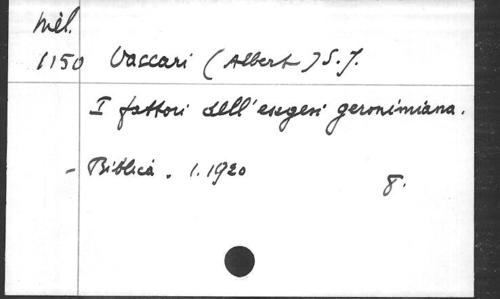 Mél.
1150 Vaccari (Albert) S. J.
I fattori dell'esegesi geronimiana.
- Biblica. 1. 1920
8.